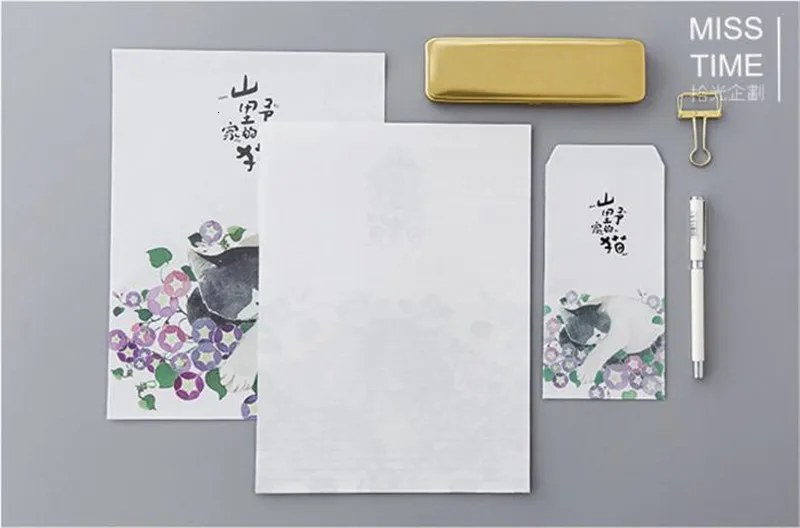 MISS
TIME
拾光企劃
山
野
家的
猫
山
野
家的
猫